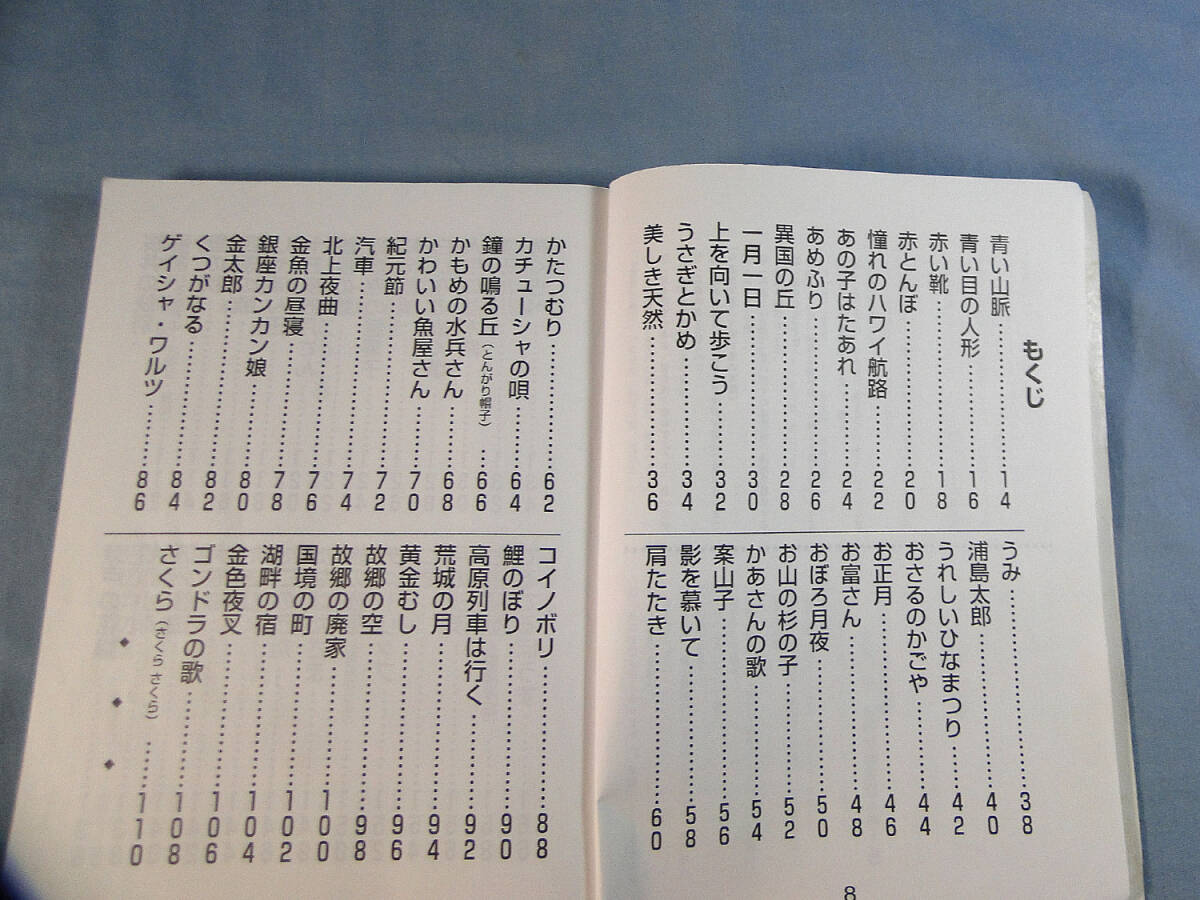 もくじ
青い山脈………………14
青い目の人形…………16
赤い靴…………………18
赤とんぼ………………20
憧れのハワイ航路……22
あの子はたあれ………24
あめふり………………26
異国の丘………………28
一月一日………………30
上を向いて歩こう……32
うさぎとかめ…………34
美しき天然……………36
うみ……………………38
浦島太郎………………40
うれしいひなまつり…42
おさるのかごや………44
お正月…………………46
お富さん………………48
おぼろ月夜……………50
お山の杉の子…………52
かあさんの歌…………54
案山子…………………56
影を慕いて……………58
肩たたき………………60
8
かたつむり……………62
カチューシャの唄……64
鐘の鳴る丘（とんがり帽子）…66
かもめの水兵さん……68
かわいい魚屋さん……70
紀元節…………………72
汽車……………………74
北上夜曲………………76
金魚の昼寝……………78
銀座カンカン娘………78
金太郎…………………80
くつがなる……………82
ゲイシャ・ワルツ……86
コイノボリ……………88
鯉のぼり………………90
高原列車は行く………92
荒城の月………………94
黄金むし………………96
故郷の空………………98
故郷の廃家……………100
国境の町………………102
湖畔の宿………………104
金色夜叉………………106
ゴンドラの歌…………108
さくら（さくら さくら）…110